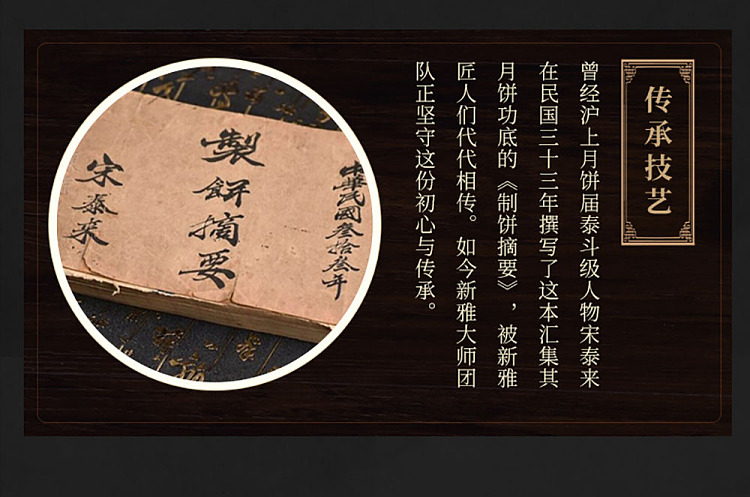 传承技艺
曾经沪上月饼届泰斗级人物宋泰来
在民国三十三年撰写了这本汇集其
月饼功底的《制饼摘要》，被新雅
匠人们代代相传。如今新雅大师团
队正坚守这份初心与传承。
中華民國叁拾叁年
製餅摘要
宋泰來